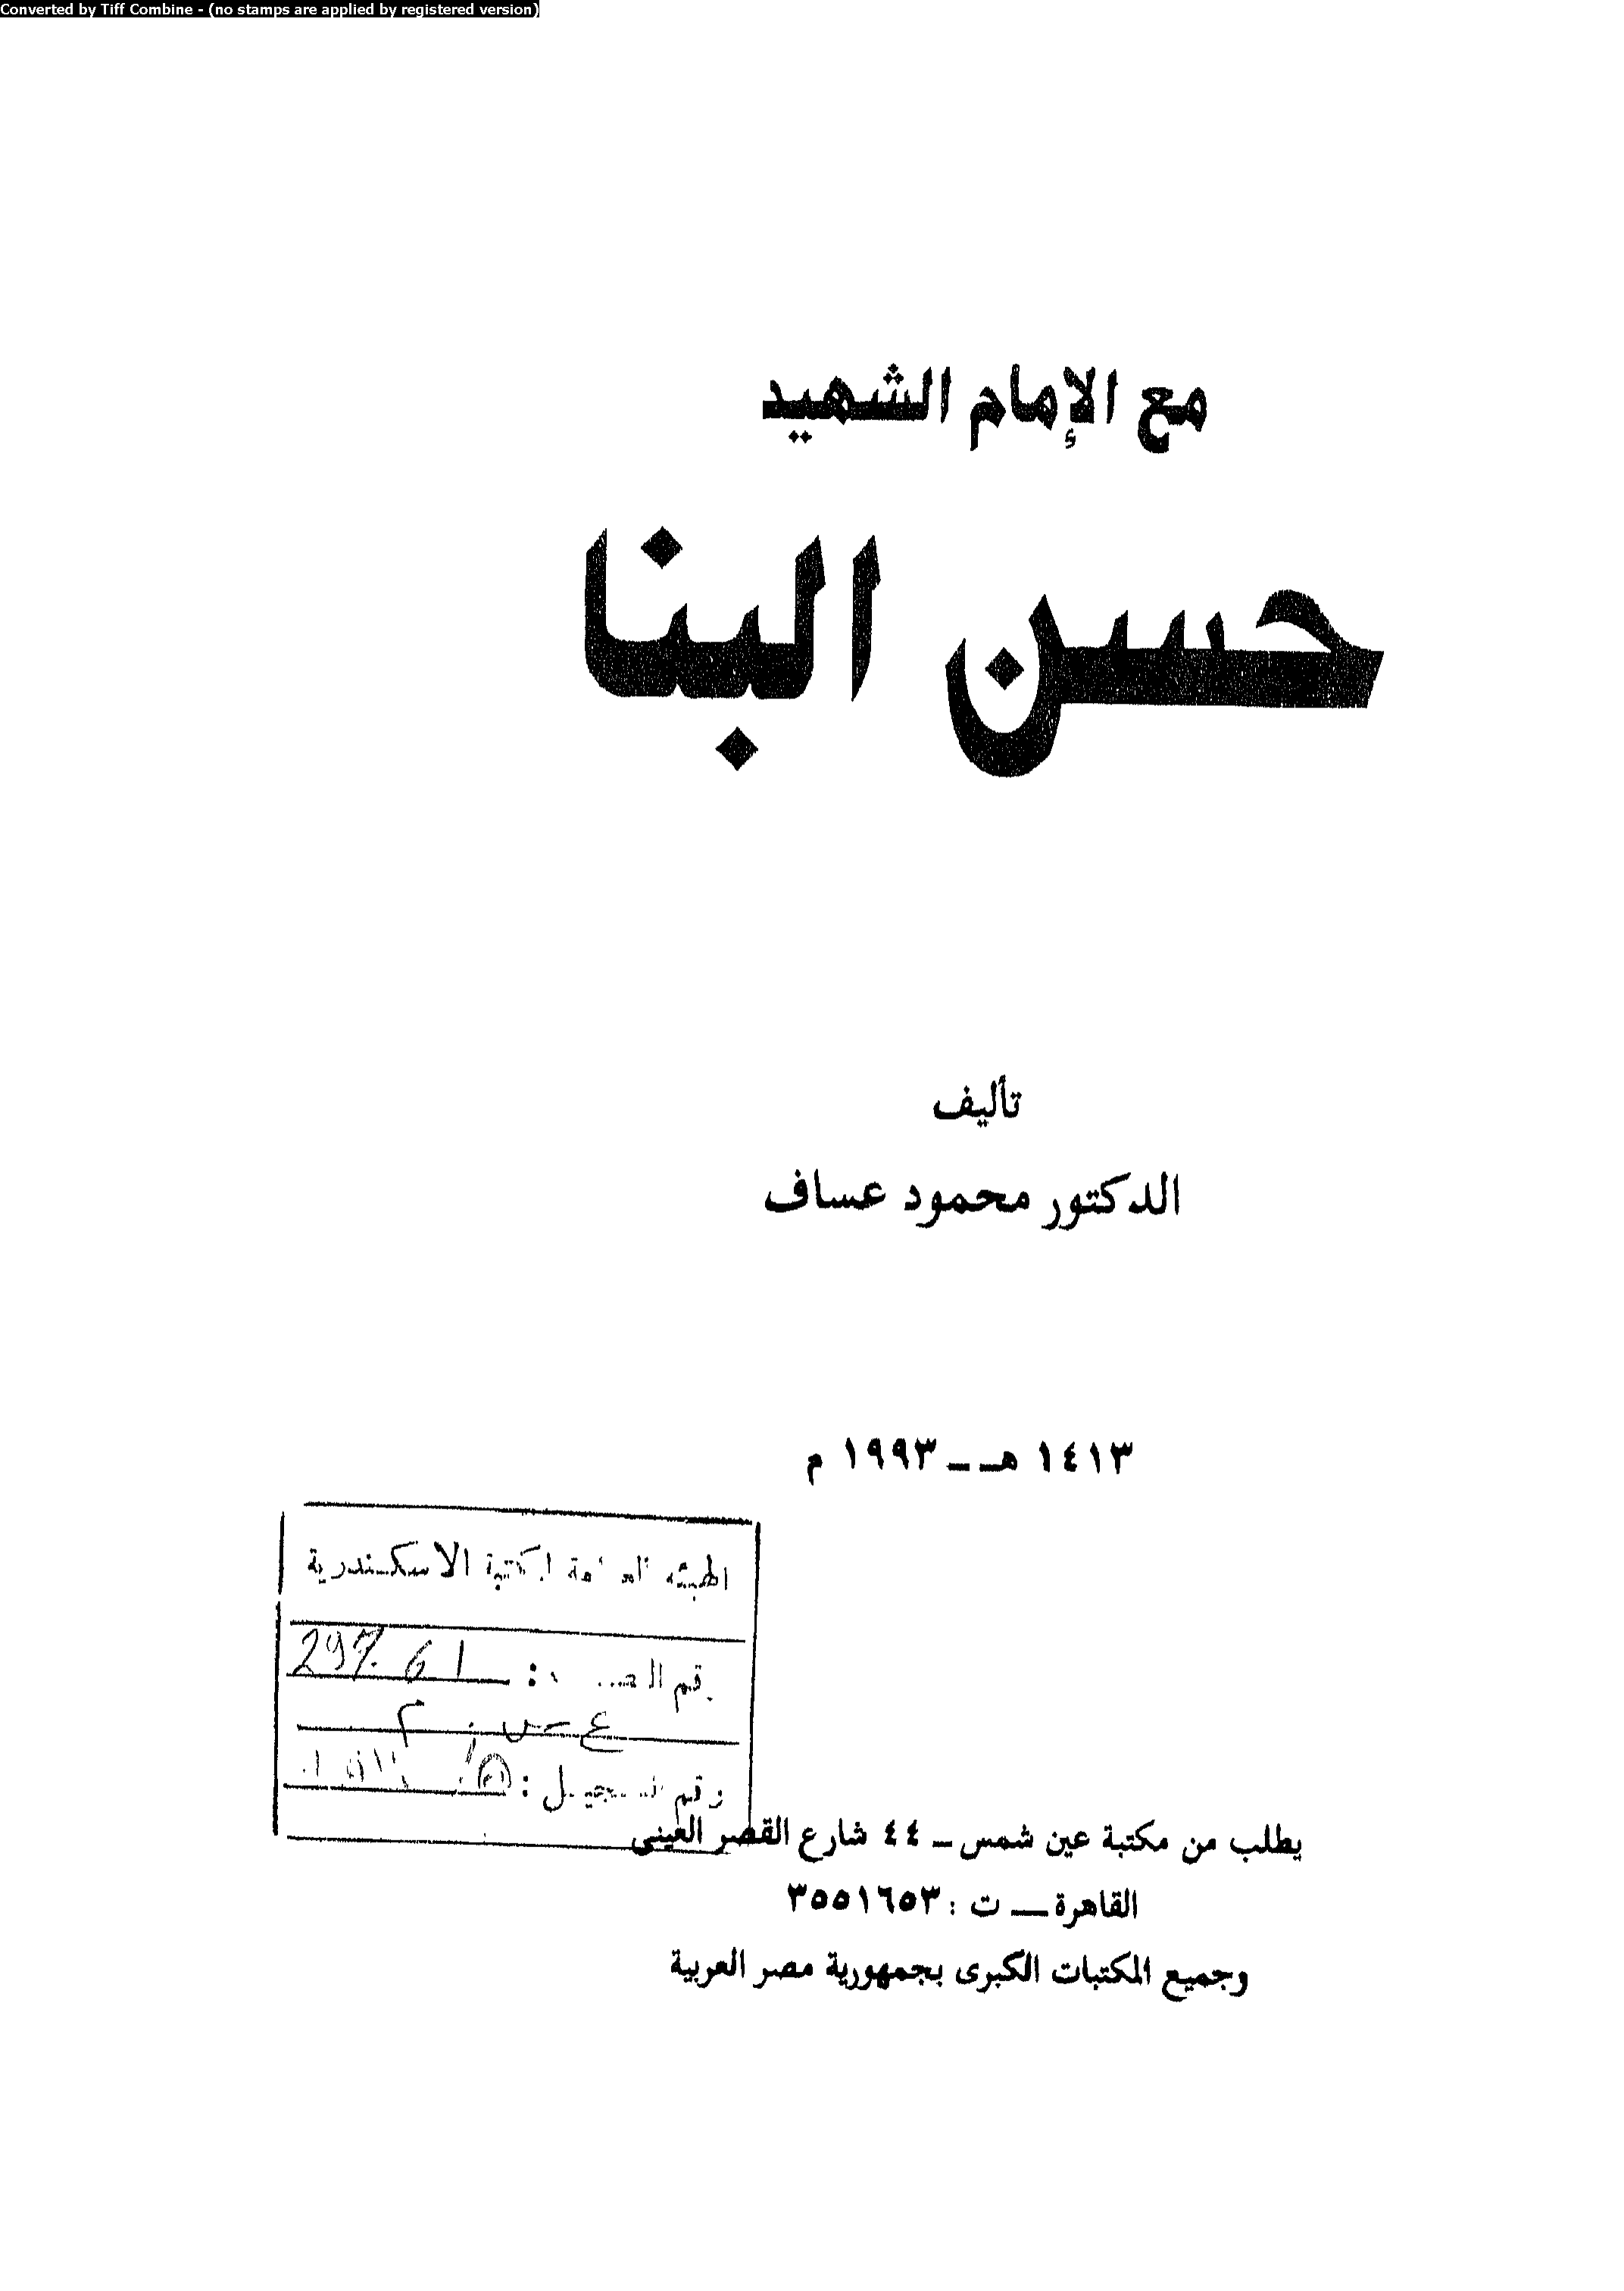 Converted by Tiff Combine - (no stamps are applied by registered version)
مع الإمام الشهيد
حسن البنا
تأليف
الدكتور محمود عساف
١٤١٣ هـ ــ ١٩٩٣ م
الهيئة العامة لمكتبة الاسكندرية
رقم : 297.61
رقم التسجيل :
يطلب من مكتبة عين شمس ــ ٤٤ شارع القصر العينى
القاهرة ــ ت : ٣٥٥١٦٥٣
وجميع المكتبات الكبرى بجمهورية مصر العربية